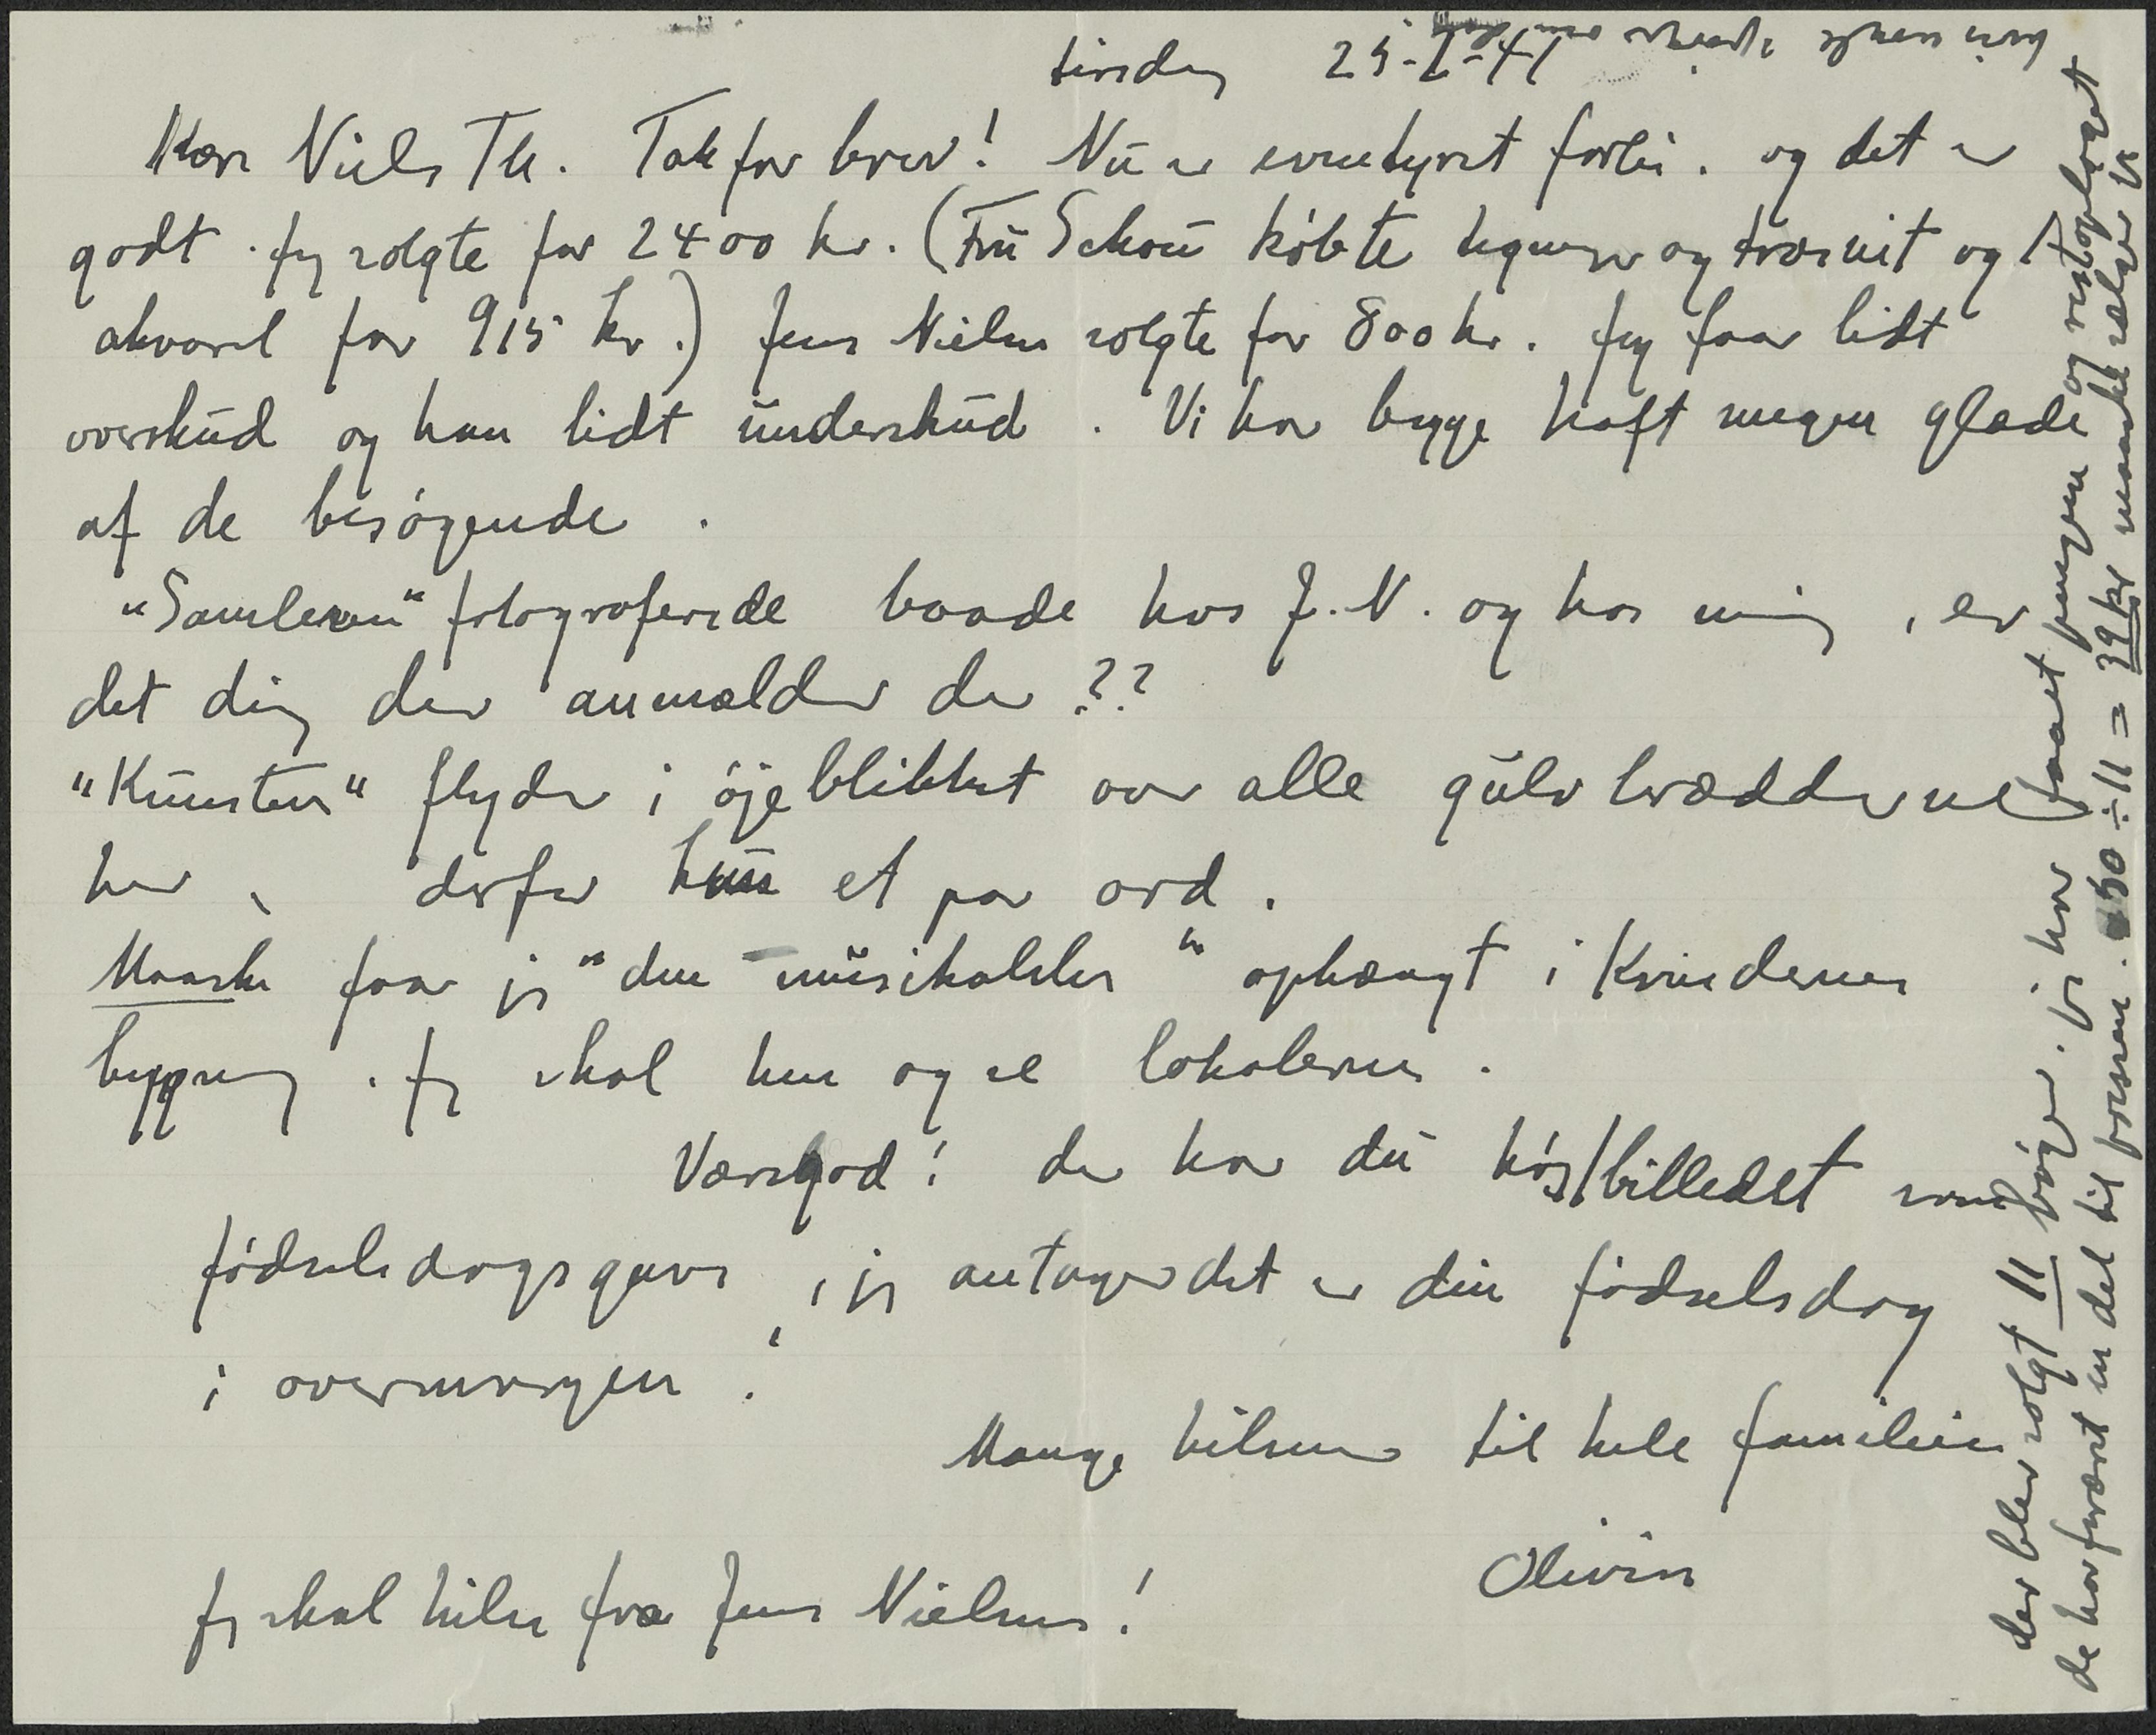 tirsdag 25-2-41
Kære Niels Th. Tak for brev! Nu er eventyret forbi. og det er
godt. Jeg solgte for 2400 kr. (Fru Schou købte tegninger og træsnit og 1
akvarel for 915 kr.) Jens Nielsen solgte for 800 kr. Jeg faar lidt
overskud og han lidt underskud. Vi har begge haft megen glæde
af de besøgende.
"Samleren" fotograferede baade hos J.N. og hos mig, er
det dig der anmelder der??
"Kunsten" flyder i øjeblikket over alle gulvbrædderne
her, derfor kun et par ord.
Maaske faar jeg "den musikalske" ophængt i Kvindernes
bygning. Jeg skal hen og se lokalerne.
Værsgod! der har du høj/billedet som
fødselsdagsgave, jeg antager det er din fødselsdag
i overmorgen!
Mange hilsener til hele familien
Olivia
Jeg skal hilse fra Jens Nielsen!
der blev solgt 11 bøger. jeg har faaet pengene og restoplaget
de har foræret en del til pressen. 50 ÷ 11 = 39 kr maaske sælger jeg